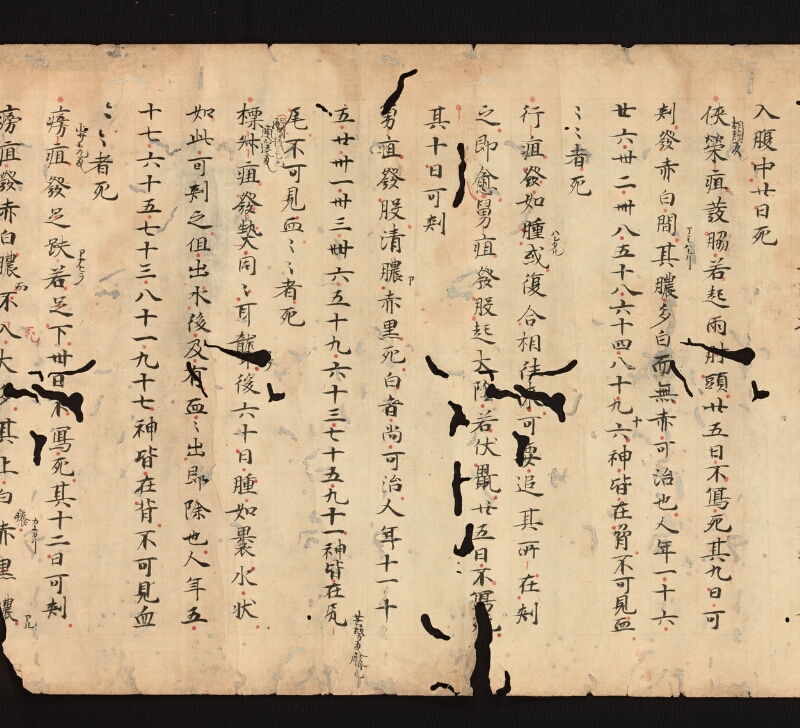 入腹中廿日死
侠榮疽發脇若起兩肘頭廿五日不寫死其九日可
刾發赤白間其膿多白而無赤可治也人年一十六
廿六卅二卅八五十八六十四八十九六神皆在脅不可見血
〻〻者死
行疽發如腫或復合相往来可要追其所在刾
之即愈舅疽發股起太陰若伏鼠廿五日不寫死
其十日可刾
勇疽發股清膿赤黒死白者尚可治人年十一十
五廿卅一卅三卌六五十九六十三七十五九十一神皆在尻
尾不可見血〻〻者死
標叔疽發熱同〻耳聾後六十日腫如裹水状
如此可刾之但出水後及有血〻出即除也人年五
十七六十五七十三八十一九十七神皆在背不可見血
〻〻者死
㾮疽發足趺若足下卅日不寫死其十二日可刾
㾮疽發赤白膿不大多其上白赤黒膿